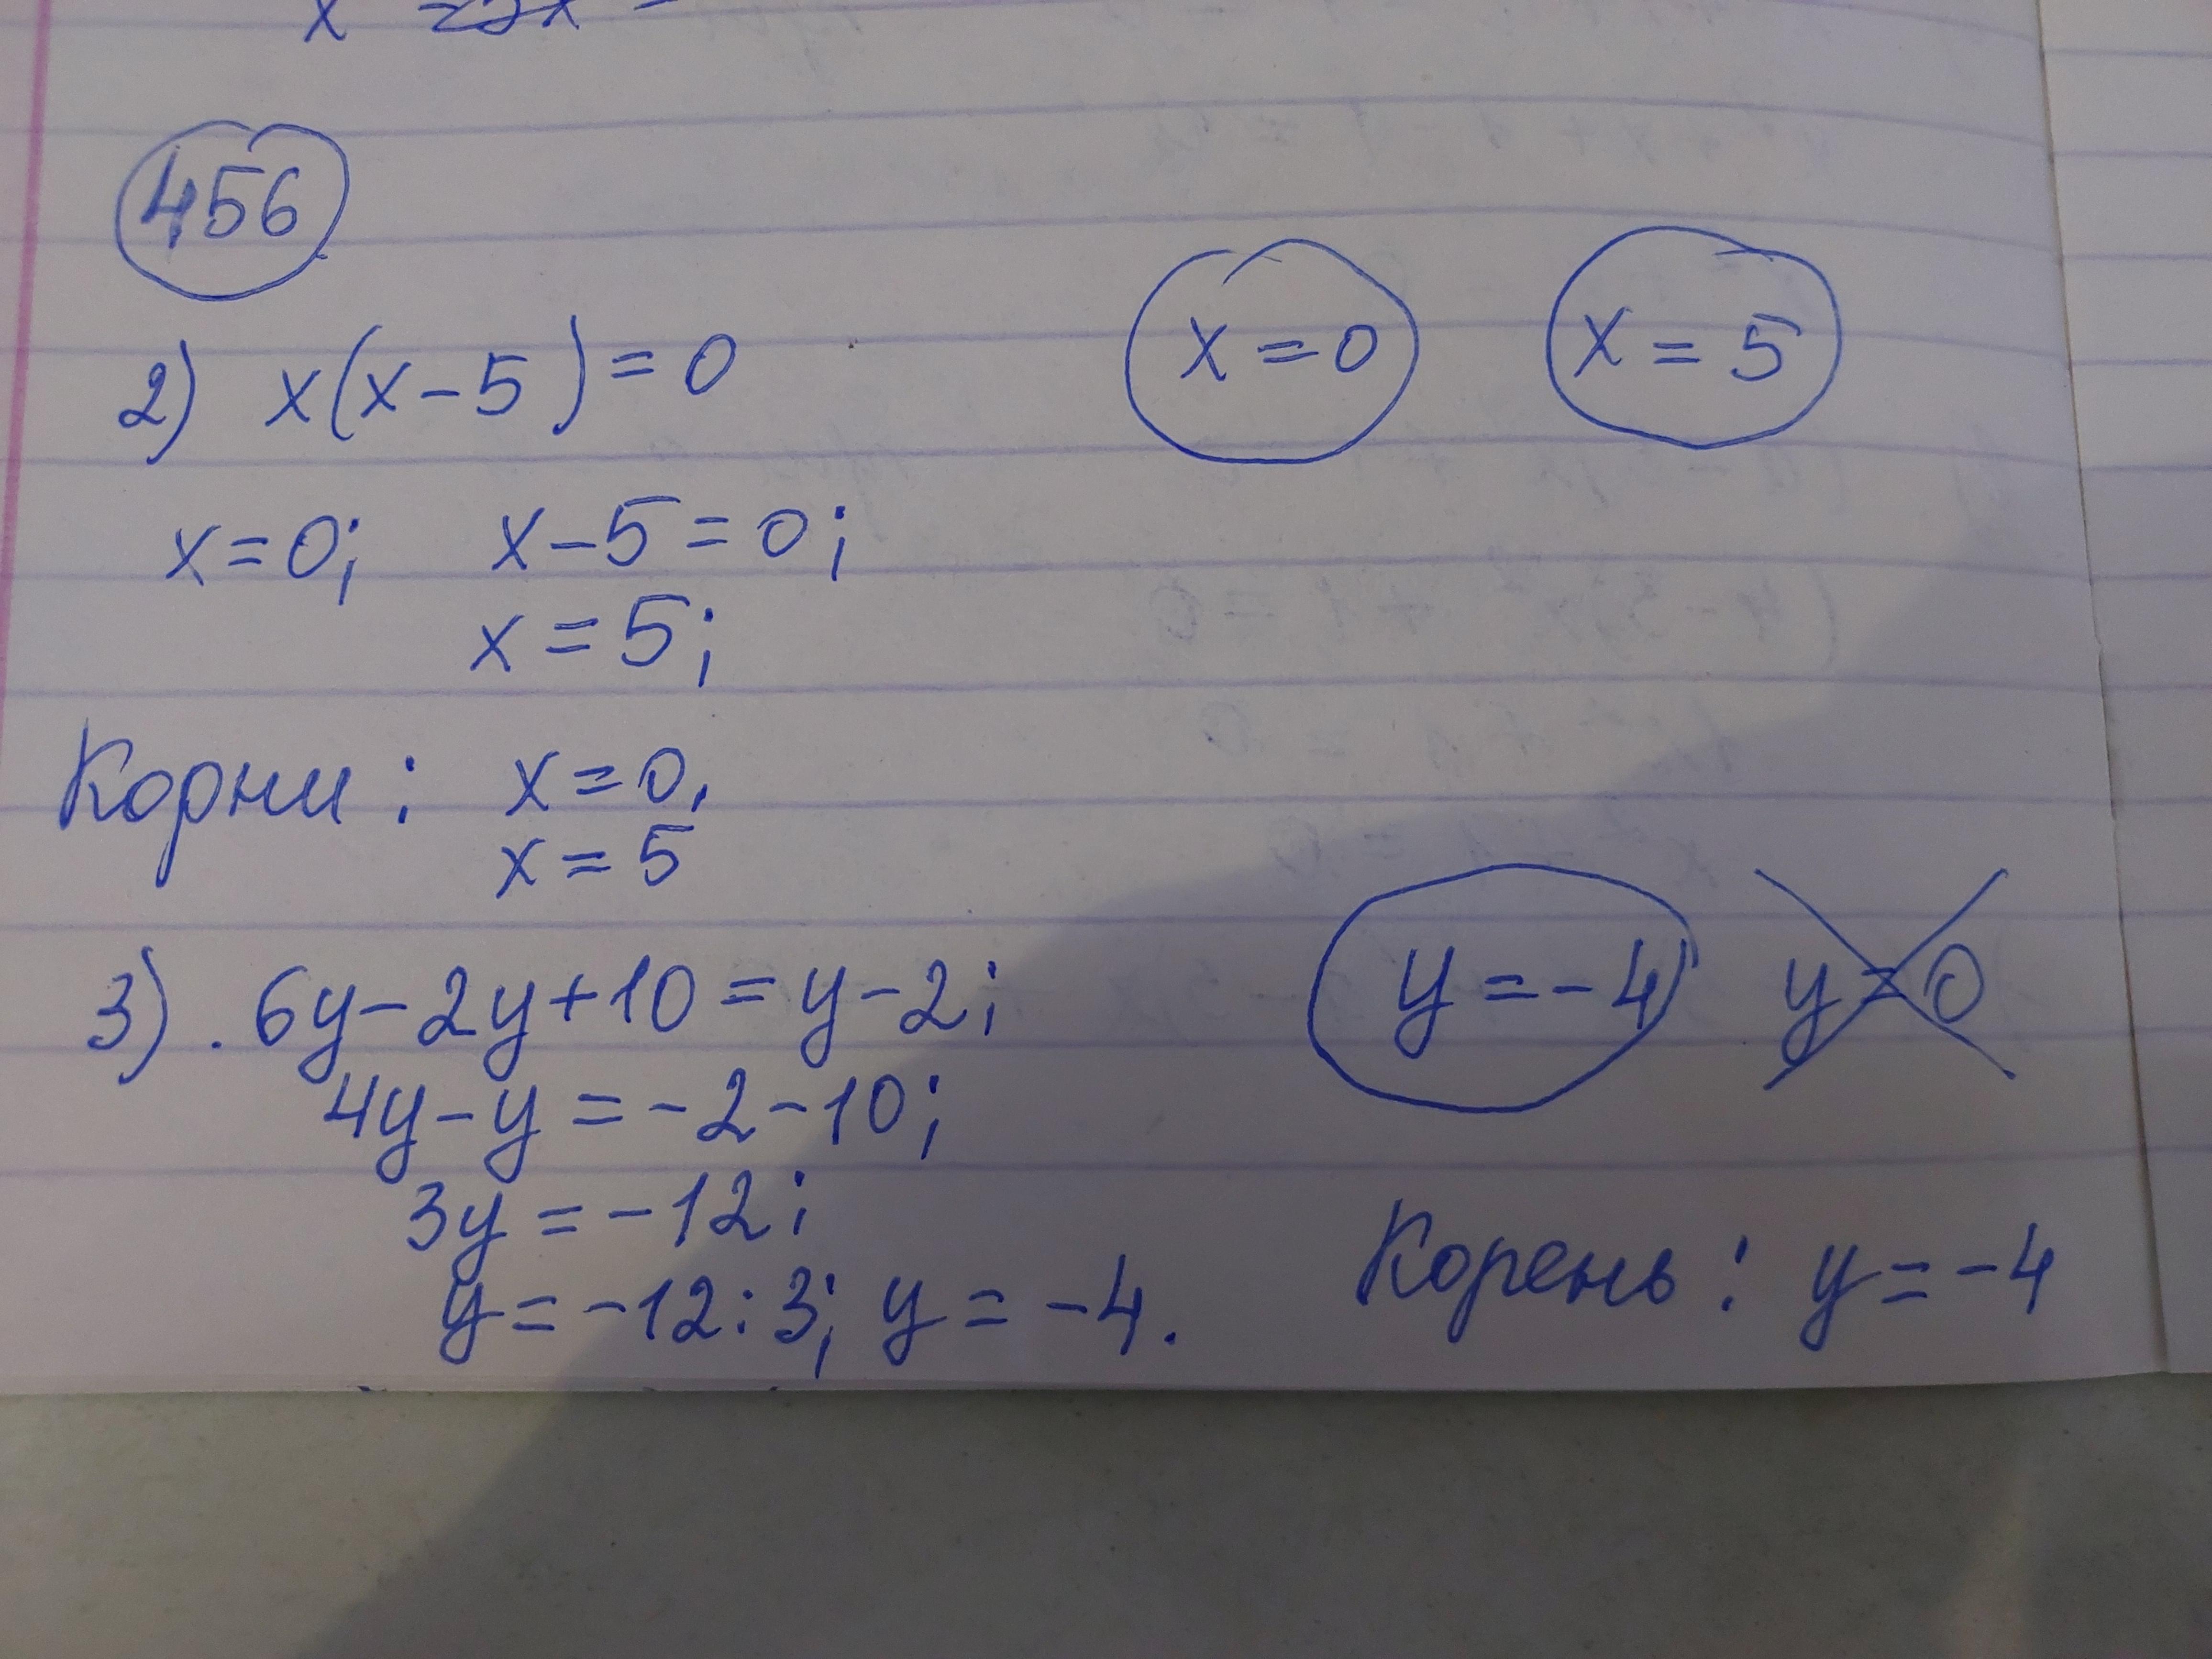 456
2) x(x-5)=0
x=0 x=5
x=0; x-5=0;
x=5;
Корни: x=0,
x=5
3). 6y-2y+10=y-2;
y=-4 y=0
4y-y=-2-10;
3y=-12;
y=-12:3; y=-4.
Корень: y=-4